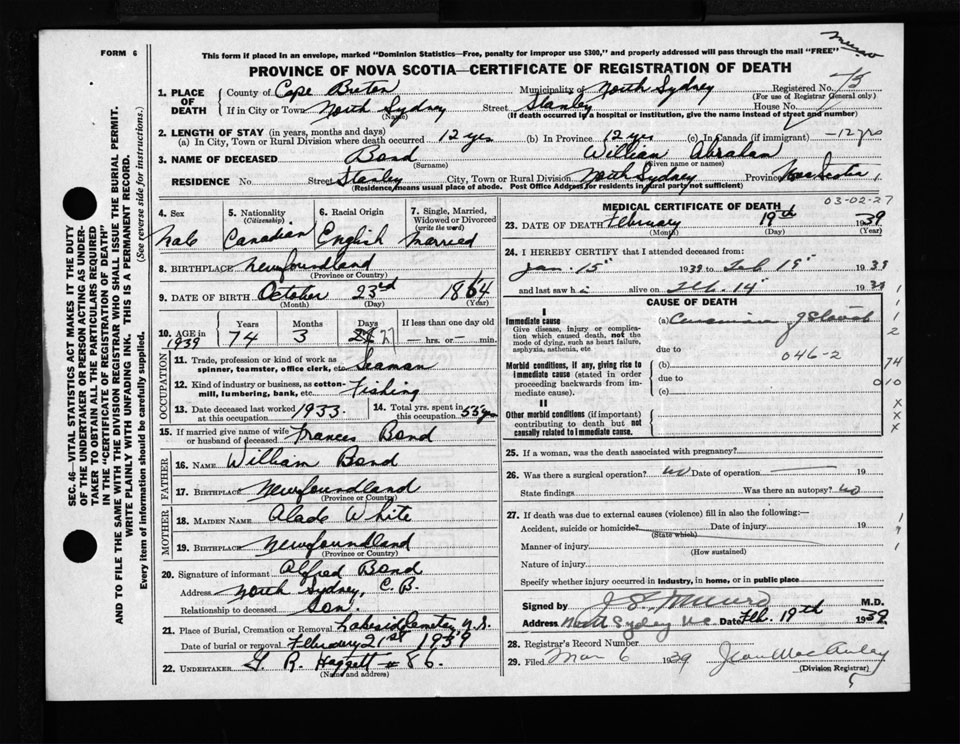 FORM 6
This form if placed in an envelope, marked "Dominion Statistics—Free, penalty for improper use $300," and properly addressed will pass through the mail "FREE"
Munro
PROVINCE OF NOVA SCOTIA—CERTIFICATE OF REGISTRATION OF DEATH
1. PLACE OF DEATH County of Cape Breton Municipality of North Sydney Registered No. 75
(For use of Registrar General only)
If in City or Town North Sydney Street Stanley House No.
(Name) (If death occurred in a hospital or institution, give the name instead of street and number)
2. LENGTH OF STAY (in years, months and days)
(a) In City, Town or Rural Division where death occurred 12 yrs (b) In Province 12 yrs (c) In Canada (if immigrant) — 12 yrs
3. NAME OF DECEASED Bond William Abraham
(Surname) (Given name or names)
RESIDENCE No. Street Stanley City, Town or Rural Division North Sydney Province Nova Scotia
(Residence means usual place of abode. Post Office Address for residents in rural party not sufficient)
4. Sex 5. Nationality (Citizenship) 6. Racial Origin 7. Single, Married, Widowed or Divorced (write the word)
Male Canadian English Married
8. BIRTHPLACE Newfoundland
(Province or Country)
9. DATE OF BIRTH October 23rd 1864
(Month) (Day) (Year)
10. AGE in 1939 Years Months Days If less than one day
74 3 27 — hrs. or — min.
OCCUPATION
11. Trade, profession or kind of work as spinner, teamster, office clerk, etc. Seaman
12. Kind of industry or business, as cotton-mill, lumbering, bank, etc. Fishing
13. Date deceased last worked at this occupation 1933. 14. Total yrs. spent in this occupation 55 yrs
15. If married give name of wife or husband of deceased Frances Bond
FATHER
16. NAME William Bond
17. BIRTHPLACE Newfoundland
(Province or Country)
MOTHER
18. MAIDEN NAME White
19. BIRTHPLACE Newfoundland
(Province or Country)
20. Signature of informant Alfred Bond
Address North Sydney, C.B.
Relationship to deceased Son.
21. Place of Burial, Cremation or Removal Lakeside Cemetery N.S.
Date of burial or removal February 21st 1939
22. UNDERTAKER G. R. Haggett #86.
(Name and address)
MEDICAL CERTIFICATE OF DEATH
03-02-27
23. DATE OF DEATH February 19th 1939
(Month) (Day) (Year)
24. I HEREBY CERTIFY that I attended deceased from:
Jan. 15" 1939 to Feb 19" 1939
and last saw h alive on Feb. 14" 1939
CAUSE OF DEATH
I
Immediate cause (a) Carcinoma
Give disease, injury or complication which caused death, not the mode of dying, such as heart failure, asphyxia, asthenia, etc
due to 046-2
Morbid conditions, if any, giving rise to immediate cause (stated in order proceeding backwards from immediate cause).
(b)
due to
(c)
II
Other morbid conditions (if important) contributing to death but not causally related to immediate cause.
1
1
2
74
010
X
X
X
25. If a woman, was the death associated with pregnancy?
26. Was there a surgical operation? no Date of operation — 19
State findings Was there an autopsy? no
27. If death was due to external causes (violence) fill in also the following:—
Accident, suicide or homicide? Date of injury 19
(State which)
Manner of injury
(How sustained)
Nature of injury
Specify whether injury occurred in industry, in home, or in public place
Signed by Munro M.D.
Address North Sydney Date Feb. 19th 1939
28. Registrar's Record Number
29. Filed Mar 6 1939 Jean MacAulay
(Division Registrar)
SEC. 46—VITAL STATISTICS ACT MAKES IT THE DUTY
OF THE UNDERTAKER OR PERSON ACTING AS UNDER-
TAKER TO OBTAIN ALL THE PARTICULARS REQUIRED
IN THE "CERTIFICATE OF REGISTRATION OF DEATH"
AND TO FILE THE SAME WITH THE DIVISION REGISTRAR WHO SHALL ISSUE THE BURIAL PERMIT.
WRITE PLAINLY WITH UNFADING INK. THIS IS A PERMANENT RECORD.
Every item of information should be carefully supplied. (See reverse side for instructions.)